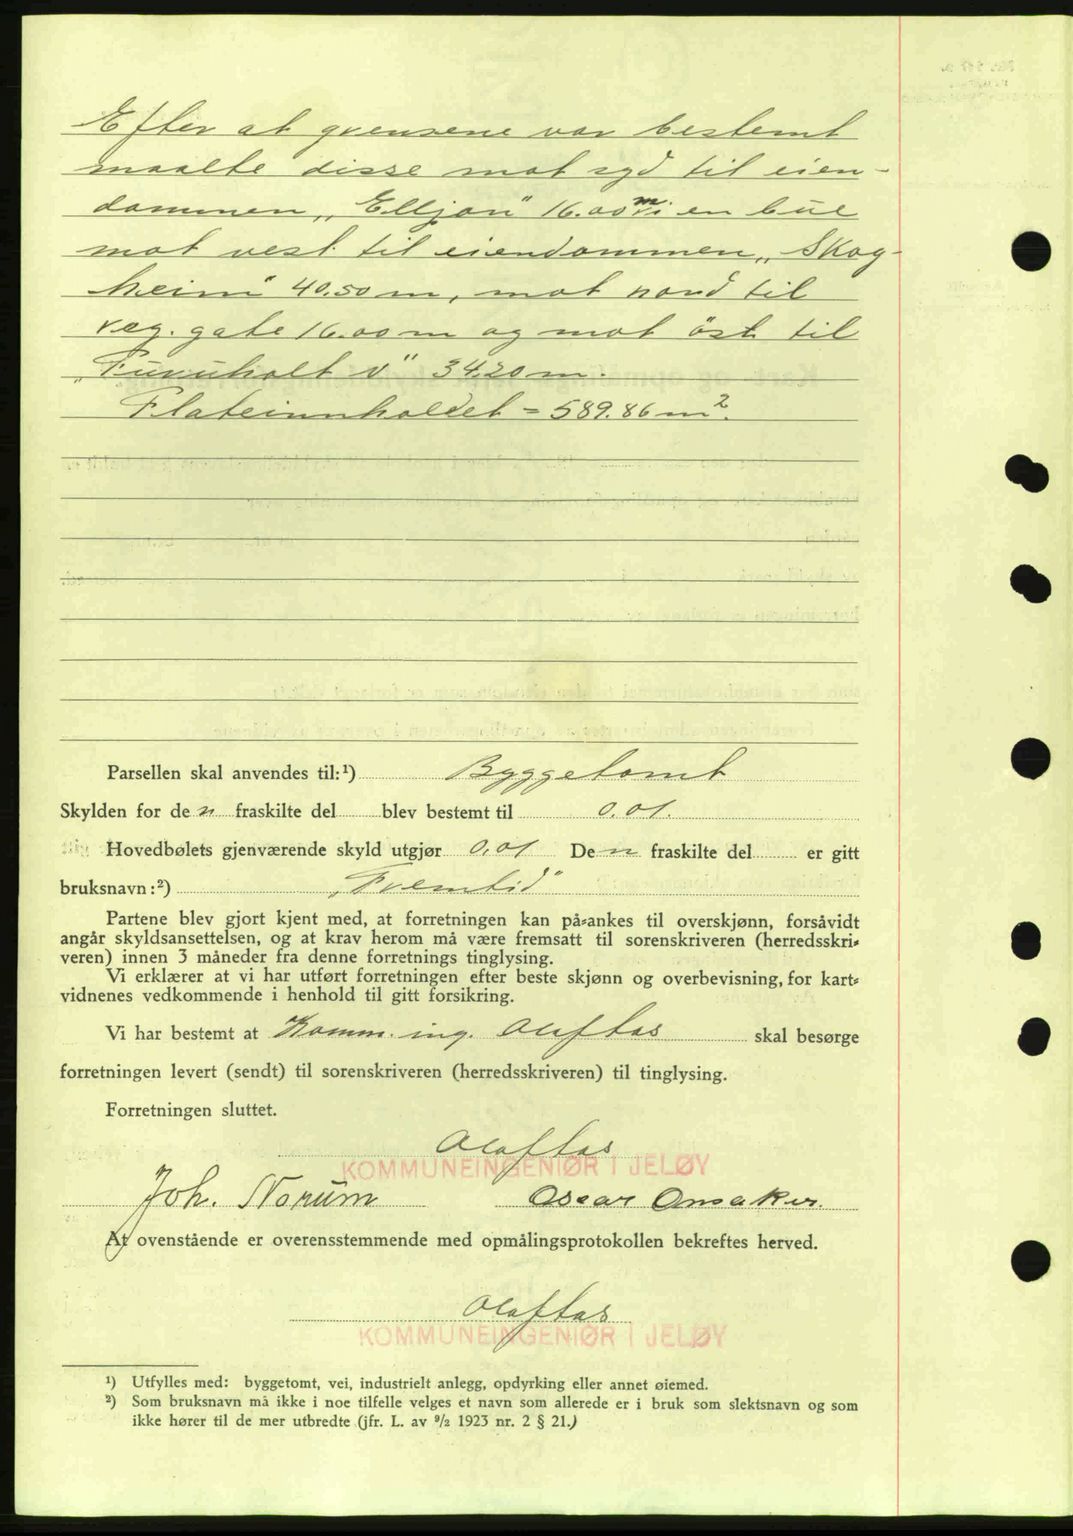 Efter at grensene var bestemt
maalte disse mot syd til eien-
dommen „Elljan" 16.00 m i en bue
mot vest til eiendommen „Skog-
heim" 40.50 m, mot nord til
veg. gate 16.00 m og mot öst til
„Furuholt V" 34.20 m.
Flateinnholdet = 589.86 m².
Parsellen skal anvendes til:¹) Byggetomt
Skylden for de n fraskilte del blev bestemt til 0.01.
Hovedbølets gjenværende skyld utgjør 0,01 De n fraskilte del er gitt
bruksnavn:²) „Fremtid"
Partene blev gjort kjent med, at forretningen kan på-ankes til overskjønn, forsåvidt
angår skyldsansettelsen, og at krav herom må være fremsatt til sorenskriveren (herredsskri-
veren) innen 3 måneder fra denne forretnings tinglysing.
Vi erklærer at vi har utført forretningen efter beste skjønn og overbevisning, for kart-
vidnenes vedkommende i henhold til gitt forsikring.
Vi har bestemt at Komm. ing. Olaftas skal besørge
forretningen levert (sendt) til sorenskriveren (herredsskriveren) til tinglysing.
Forretningen sluttet.
Olaftas
KOMMUNEINGENIØR I JELØY
Joh. Norum Oscar Onsaker.
At ovenstående er overensstemmende med opmålingsprotokollen bekreftes herved.
Olaftas
KOMMUNEINGENIØR I JELØY
¹) Utfylles med: byggetomt, vei, industrielt anlegg, opdyrking eller annet øiemed.
²) Som bruksnavn må ikke i noe tilfelle velges et navn som allerede er i bruk som slektsnavn og som
ikke hører til de mer utbredte (jfr. L. av ⁹/₂ 1923 nr. 2 § 21.)